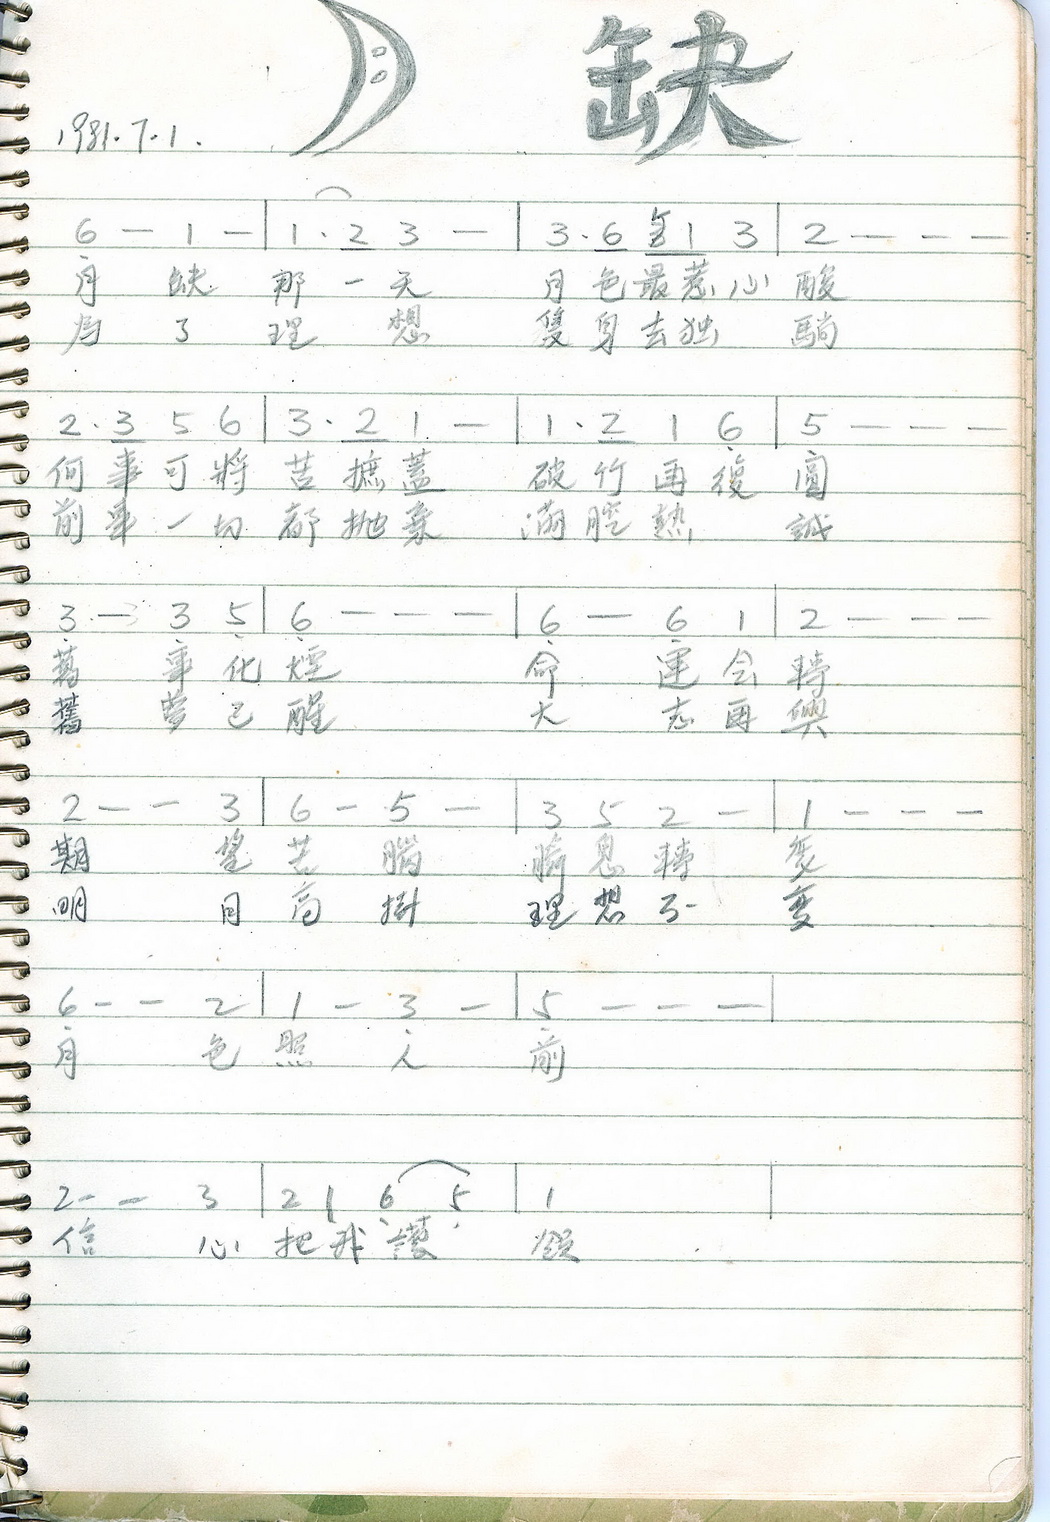 缺
1981.7.1.
6 — 1 — | 1 · 2 3 — | 3 · 6 1 3 | 2 — — —
月 缺 那 一 天 月 色 最 惹 心 酸
為 了 理 想 隻 身 去 独 闖
2 · 3 5 6 | 3 · 2 1 — | 1 · 2 1 6 | 5 — — —
何 事 可 將 苦 摭 蓋 破 竹 再 復 圓
前 事 一 切 都 拋 棄 滿 腔 熱 誠
3 — 3 5 | 6 — — — | 6 — 6 1 | 2 — — —
舊 事 化 煙 命 運 会 轉
舊 夢 已 醒 大 志 再 與
2 — — 3 | 6 — 5 — | 3 5 2 — | 1 — — —
期 望 苦 腦 瞬 息 轉 変
明 月 高 掛 理 想 不 變
6 — — 2 | 1 — 3 — | 5 — — — |
月 色 照 人 前
2 — — 3 | 2 1 6 5 | 1 |
信 心 把 我 護